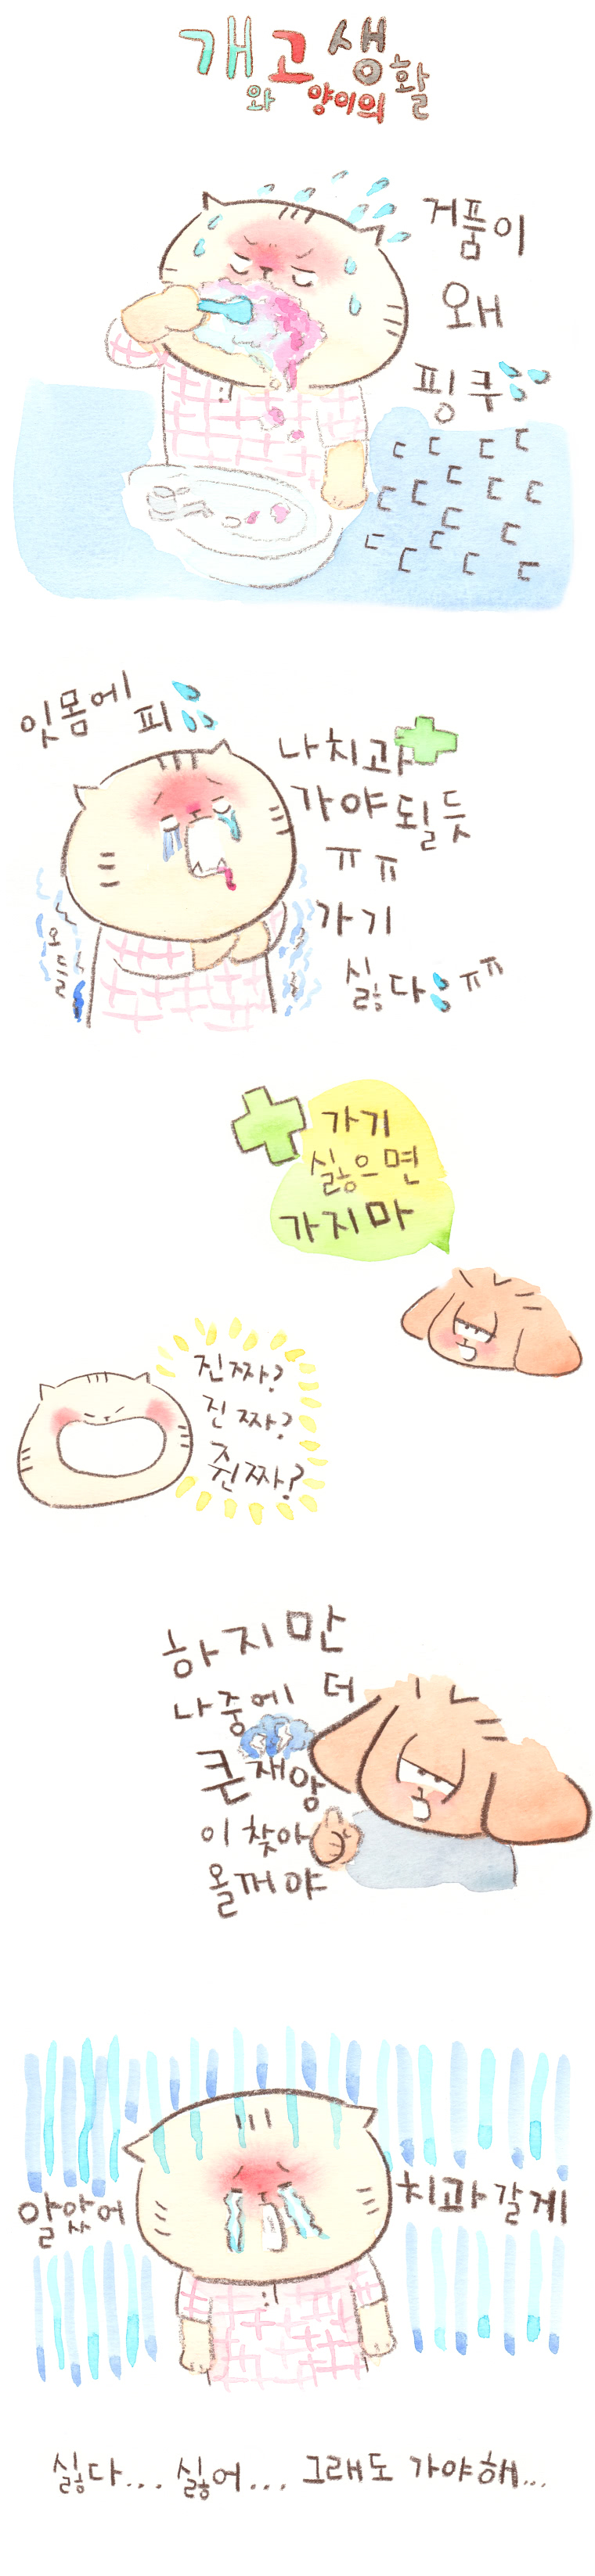 개와 고양이의 생활
거품이
왜
핑쿠
ㄷㄷㄷㄷ
ㄷㄷㄷㄷㄷ
ㄷㄷㄷ
ㄷㄷㄷㄷ
잇몸에 피
나 치과
가야 될 듯
ㅠㅠ
가기
싫다 ㅠㅠ
오들
가기
싫으면
가지마
진짜?
진짜?
줜짜?
하지만
나중에 더
큰 재앙
이 찾아
올꺼야
알았어
치과 갈게
싫다... 싫어... 그래도 가야해...